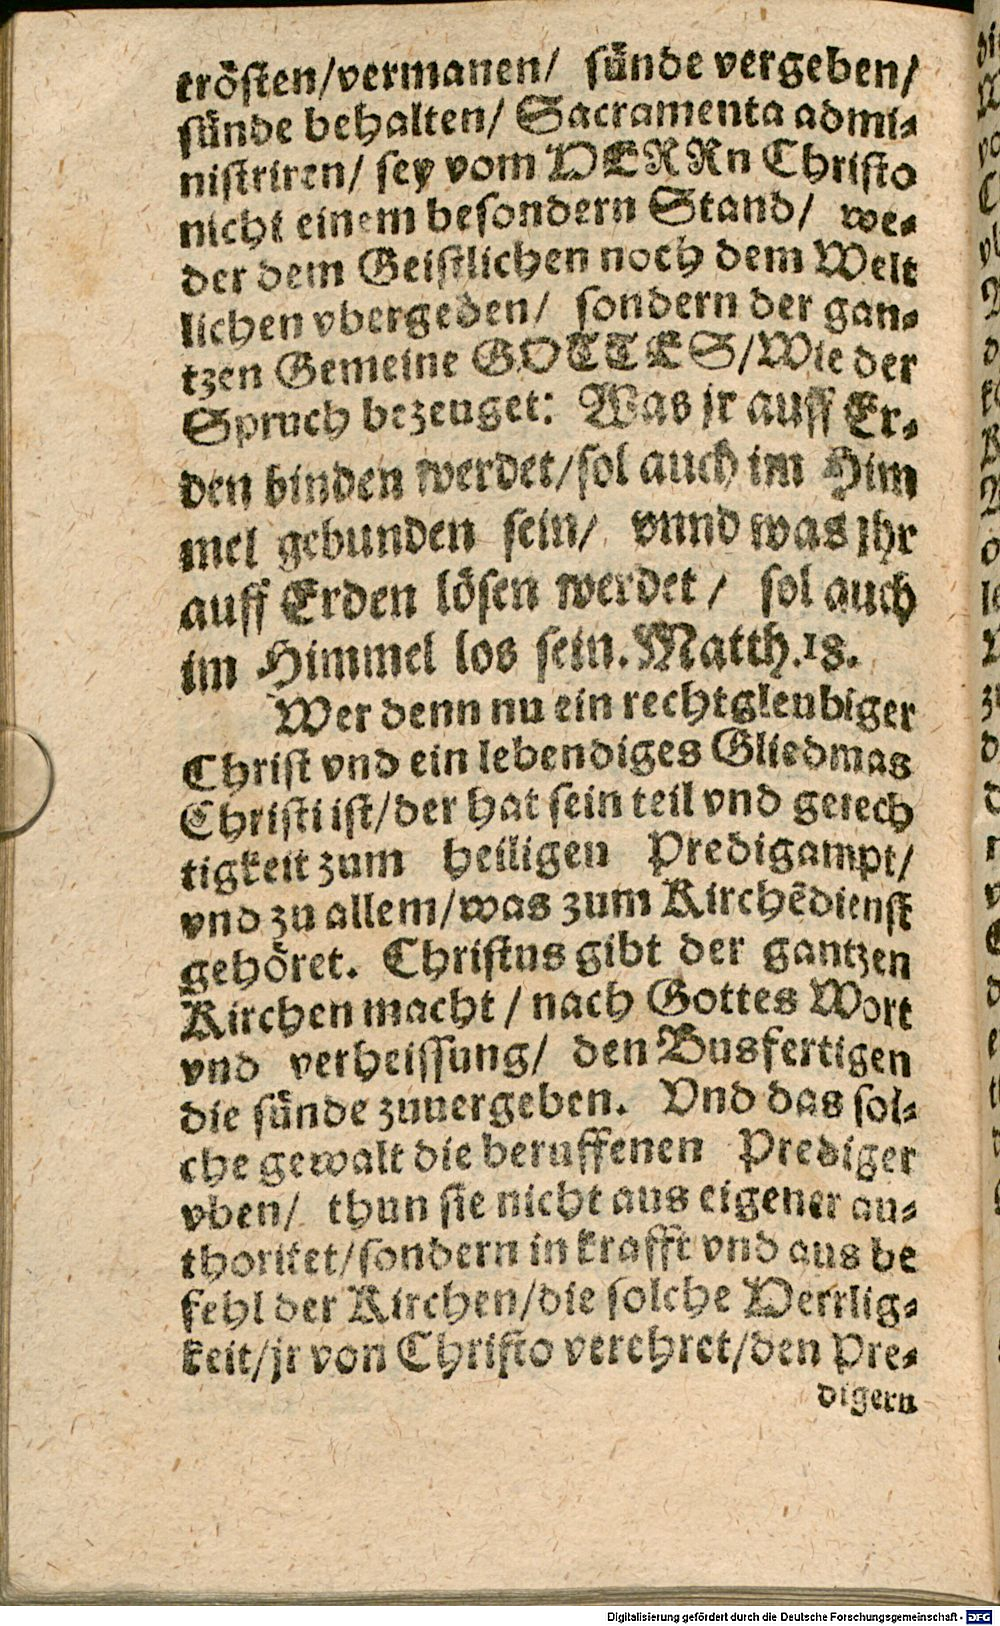 trösten/vermanen/ sünde vergeben/
sünde behalten/ Sacramenta admi-
nistriren/ sey vom HERRn Christo
nicht einem besondern Stand/ we-
der dem Geistlichen noch dem Welt
lichen vbergeden/ sondern der gan-
tzen Gemeine GOTTES/Wie der
Spruch bezeuget: Was jr auff Er-
den binden werdet/sol auch im Him
mel gebunden sein/ vnnd was jhr
auff Erden lösen werdet/ sol auch
im Himmel los sein. Matth.18.
Wer denn nu ein rechtgleubiger
Christ vnd ein lebendiges Gliedmas
Christi ist/der hat sein teil vnd gerech
tigkeit zum heiligen Predigampt/
vnd zu allem/was zum Kirchẽdienst
gehöret. Christus gibt der gantzen
Kirchen macht/nach Gottes Wort
vnd verheissung/ den Busfertigen
die sünde zuuergeben. Vnd das sol-
che gewalt die beruffenen Prediger
vben/ thun sie nicht aus eigener au-
thoritet/sondern in krafft vnd aus be
fehl der Kirchen/die solche Herrlig-
keit/jr von Christo verehret/den Pre-
digern
Digitalisierung gefördert durch die Deutsche Forschungsgemeinschaft - DFG